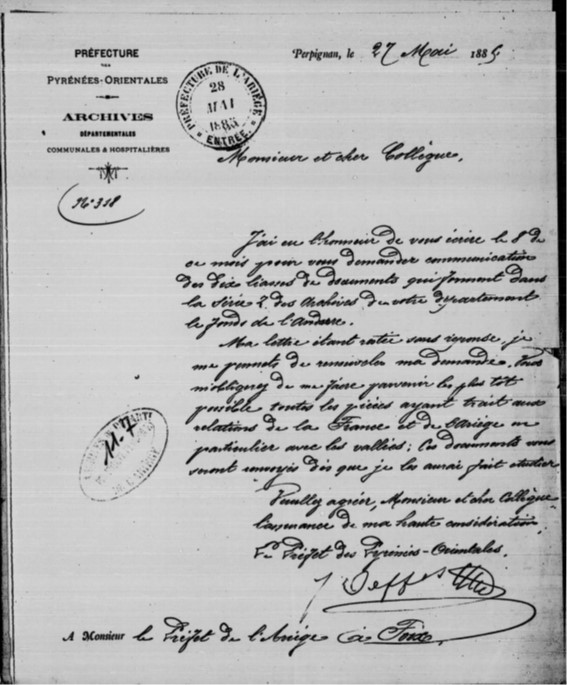 PRÉFECTURE
DES
PYRÉNÉES-ORIENTALES
ARCHIVES
DÉPARTEMENTALES
COMMUNALES & HOSPITALIÈRES
N° 318
Perpignan, le 27 Mai 1885
PRÉFECTURE DE L'ARIÈGE
28
MAI
1885
ENTRÉE
Monsieur et cher Collègue,
J'ai eu l'honneur de vous écrire le 8 de
ce mois pour vous demander communication
des dix liasses de documents qui forment dans
la Série Z des Archives de votre département
le fonds de l'Andorre.
Ma lettre étant restée sans réponse, je
me permets de renouveler ma demande. Vous
m'obligerez de me faire parvenir le plus tôt
possible toutes les pièces ayant trait aux
relations de la France et de l'Ariège en
particulier avec les vallées; Ces documents vous
seront renvoyés dès que je les aurai fait étudier
Veuillez agréer, Monsieur et cher Collègue
l'assurance de ma haute considération.
Le Préfet des Pyrénées-Orientales.
117
DE L'ARIÈGE
A Monsieur le Préfet de l'Ariège à Foix